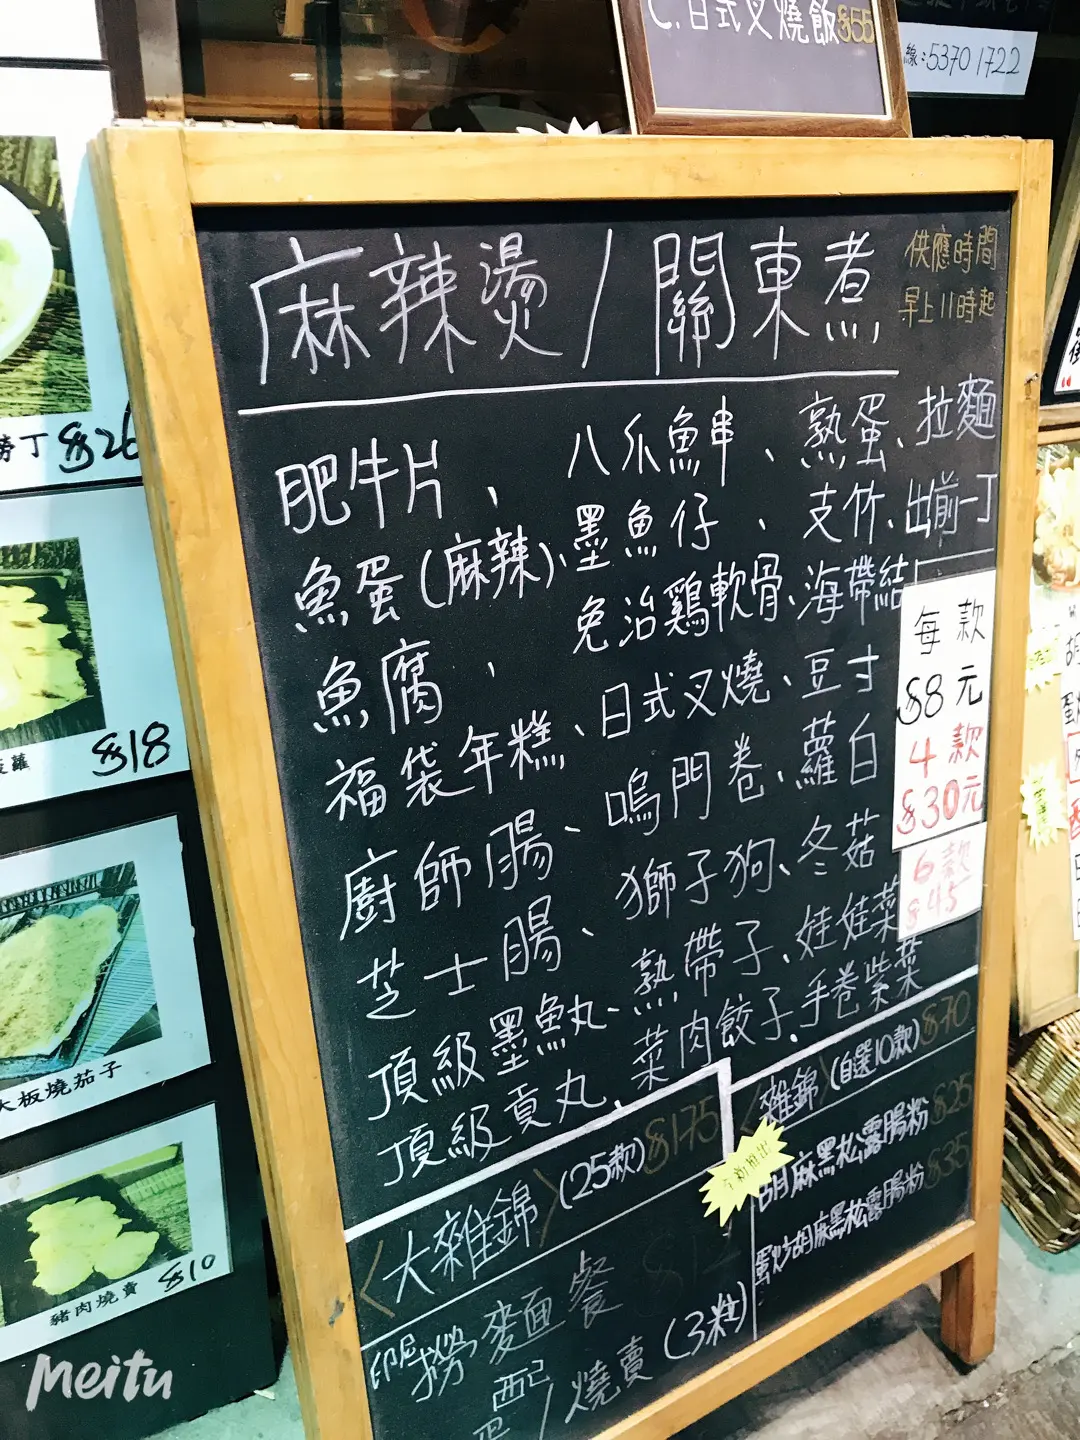 C.日式叉燒飯$55
線:5370 1722
麻辣燙/關東煮
供應時間
早上11時起
肥牛片、八爪魚串、熟蛋、拉麵
魚蛋(麻辣)、墨魚仔、支竹、出前一丁
魚腐、免治鷄軟骨、海帶結
福袋年糕、日式叉燒、豆寸
廚師腸、鳴門卷、蘿白
芝士腸、獅子狗、冬菇
頂級墨魚丸、熟帶子、娃娃菜
頂級貢丸、菜肉餃子、手卷紫菜
每款
$8元
4款
$30元
6款
$45
<大雜錦>(25款)$175
<雜錦>(自選10款)$70
全新推出
胡麻黑松露腸粉 $25
蛋炒胡麻黑松露腸粉 $35
印尼撈麵餐 $12
配
燒賣(3粒)
丁 $26
$18
大板燒茄子
豬肉燒賣 $10
Meitu